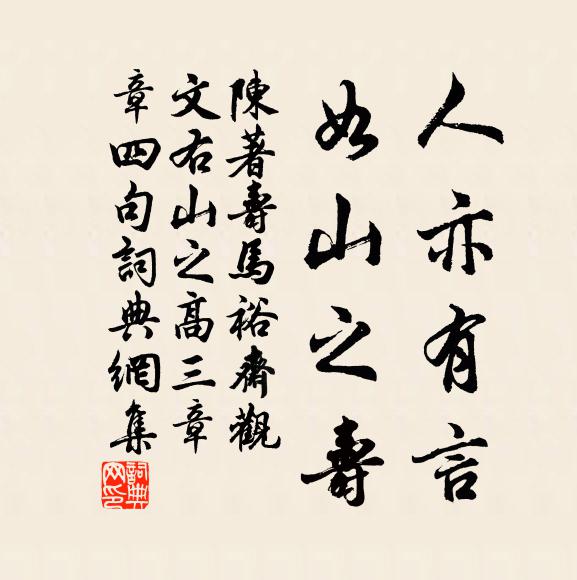 人亦有言
如山之壽
陳著壽馬裕齋觀
文右山之高三章
章四句詞典網集
詞典網印